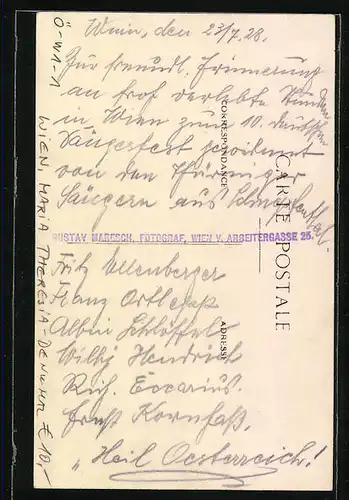 Wien, den 23/7. 28.
Zur freundl. Erinnerung
an froh verlebte Stunden
in Wien zum 10. deutschen
Sängerfest gewidmet
von den Thüringer
Sängern aus
GUSTAV MARESCH, FOTOGRAF, WIEN V. ARBEITERGASSE 25.
Fritz Ellenberger
Franz Ortlepp
Albin Schlöffel
Willy Hendrich
Rich. Eccarius.
Ernst Kornhaß.
"Heil Oesterreich!
CARTE POSTALE
CORRESPONDANCE
ADRESSE
Ö-W1-1
WIEN, MARIA THERESIA-DENKMAL € 10,-